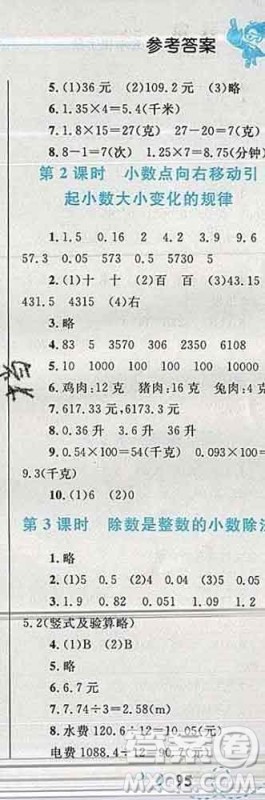 参考答案
5.(1)36元 (2)109.2元 (3)略
6.1.35×4=5.4(千米)
7.1.35×20=27(克) 27-20=7(克)
8.8-1=7(次) 1.25×7=8.75(分钟)
第2课时 小数点向右移动引
起小数大小变化的规律
1.1.5 0.16 2 4.2 3.9 9.6
57.3 0.05 573 0.51 4.5 0.5
2.(1)十 十 (2)百 百 (3)43.15
431.5 4315 (4)右
3.略
4.83 5 3570 106 2350 60
5.10 1000 10 100 6230 10000
6.鸡肉:12克 猪肉:16克 兔肉:4克
7.617.33元,6173.3元
8.0.36升 3.6升 36升
9.0.54×100=54(千克) 0.093×100=
9.3(千克)
10.(1)6 (2)0
第3课时 除数是整数的小数除法
1.略
2.(1)5 0.5 (2)4 0.04 (3)
3.1.2 0.19 0.051 1.09
5.2(竖式及验算略)
4.(1)B (2)B
5.略
6.6.7元
7.7.74÷3=2.58(m)
8.水费126.6÷12=10.05(元)
电费1088.4÷12=90.7(元)
95